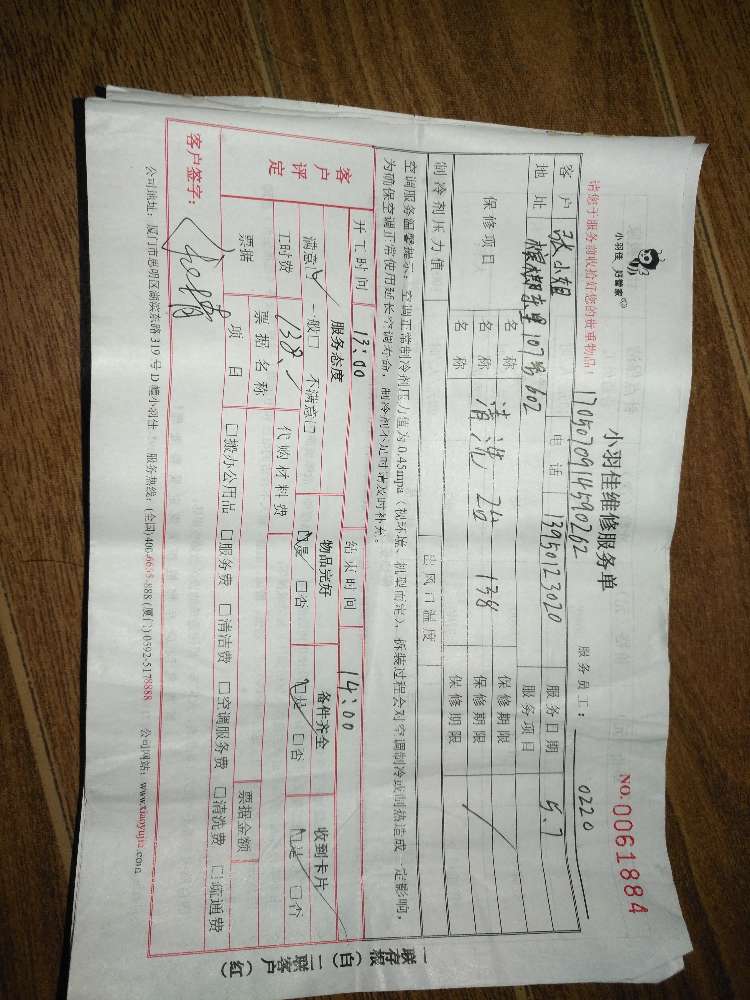 小羽佳 好管家
小羽佳维修服务单
NO.0061884
请您于服务前收拾好您的贵重物品!
1705070914590262
服务员工: 0220
客户 张小姐 电话 13950123020 服务日期 5.7
地址 107号602 服务项目
保修项目 名称 保修期限
名称 清洗 2台 138 保修期限 /
名称 保修期限
制冷剂压力值 出风口温度
空调服务温馨提示:空调正常制冷剂压力值为0.45mpa(视环境、机型而定),拆装过程会对空调制冷或制热造成一定影响,
为确保空调正常使用延长空调寿命,制冷剂不足时请及时补充。
开工时间 13:00 结束时间 14:00
客户评定
服务态度 物品完好 备件齐全 收到卡片
满意☑ 一般□ 不满意□ ☑是 □否 ☑是 □否 ☑是 □否
工时费 138. 代购材料费
票据 票据名称 票据金额
项目 □搬办公用品 □服务费 □清洁费 □空调服务费 □清洗费 □疏通费
客户签字:
公司地址:厦门市思明区湖滨东路319号D幢小羽佳 服务热线:(全国)400-6655-888 (厦门)0592-5178888 公司网站:www.xiaoyujia.com
一联存根(白) 二联客户(红)